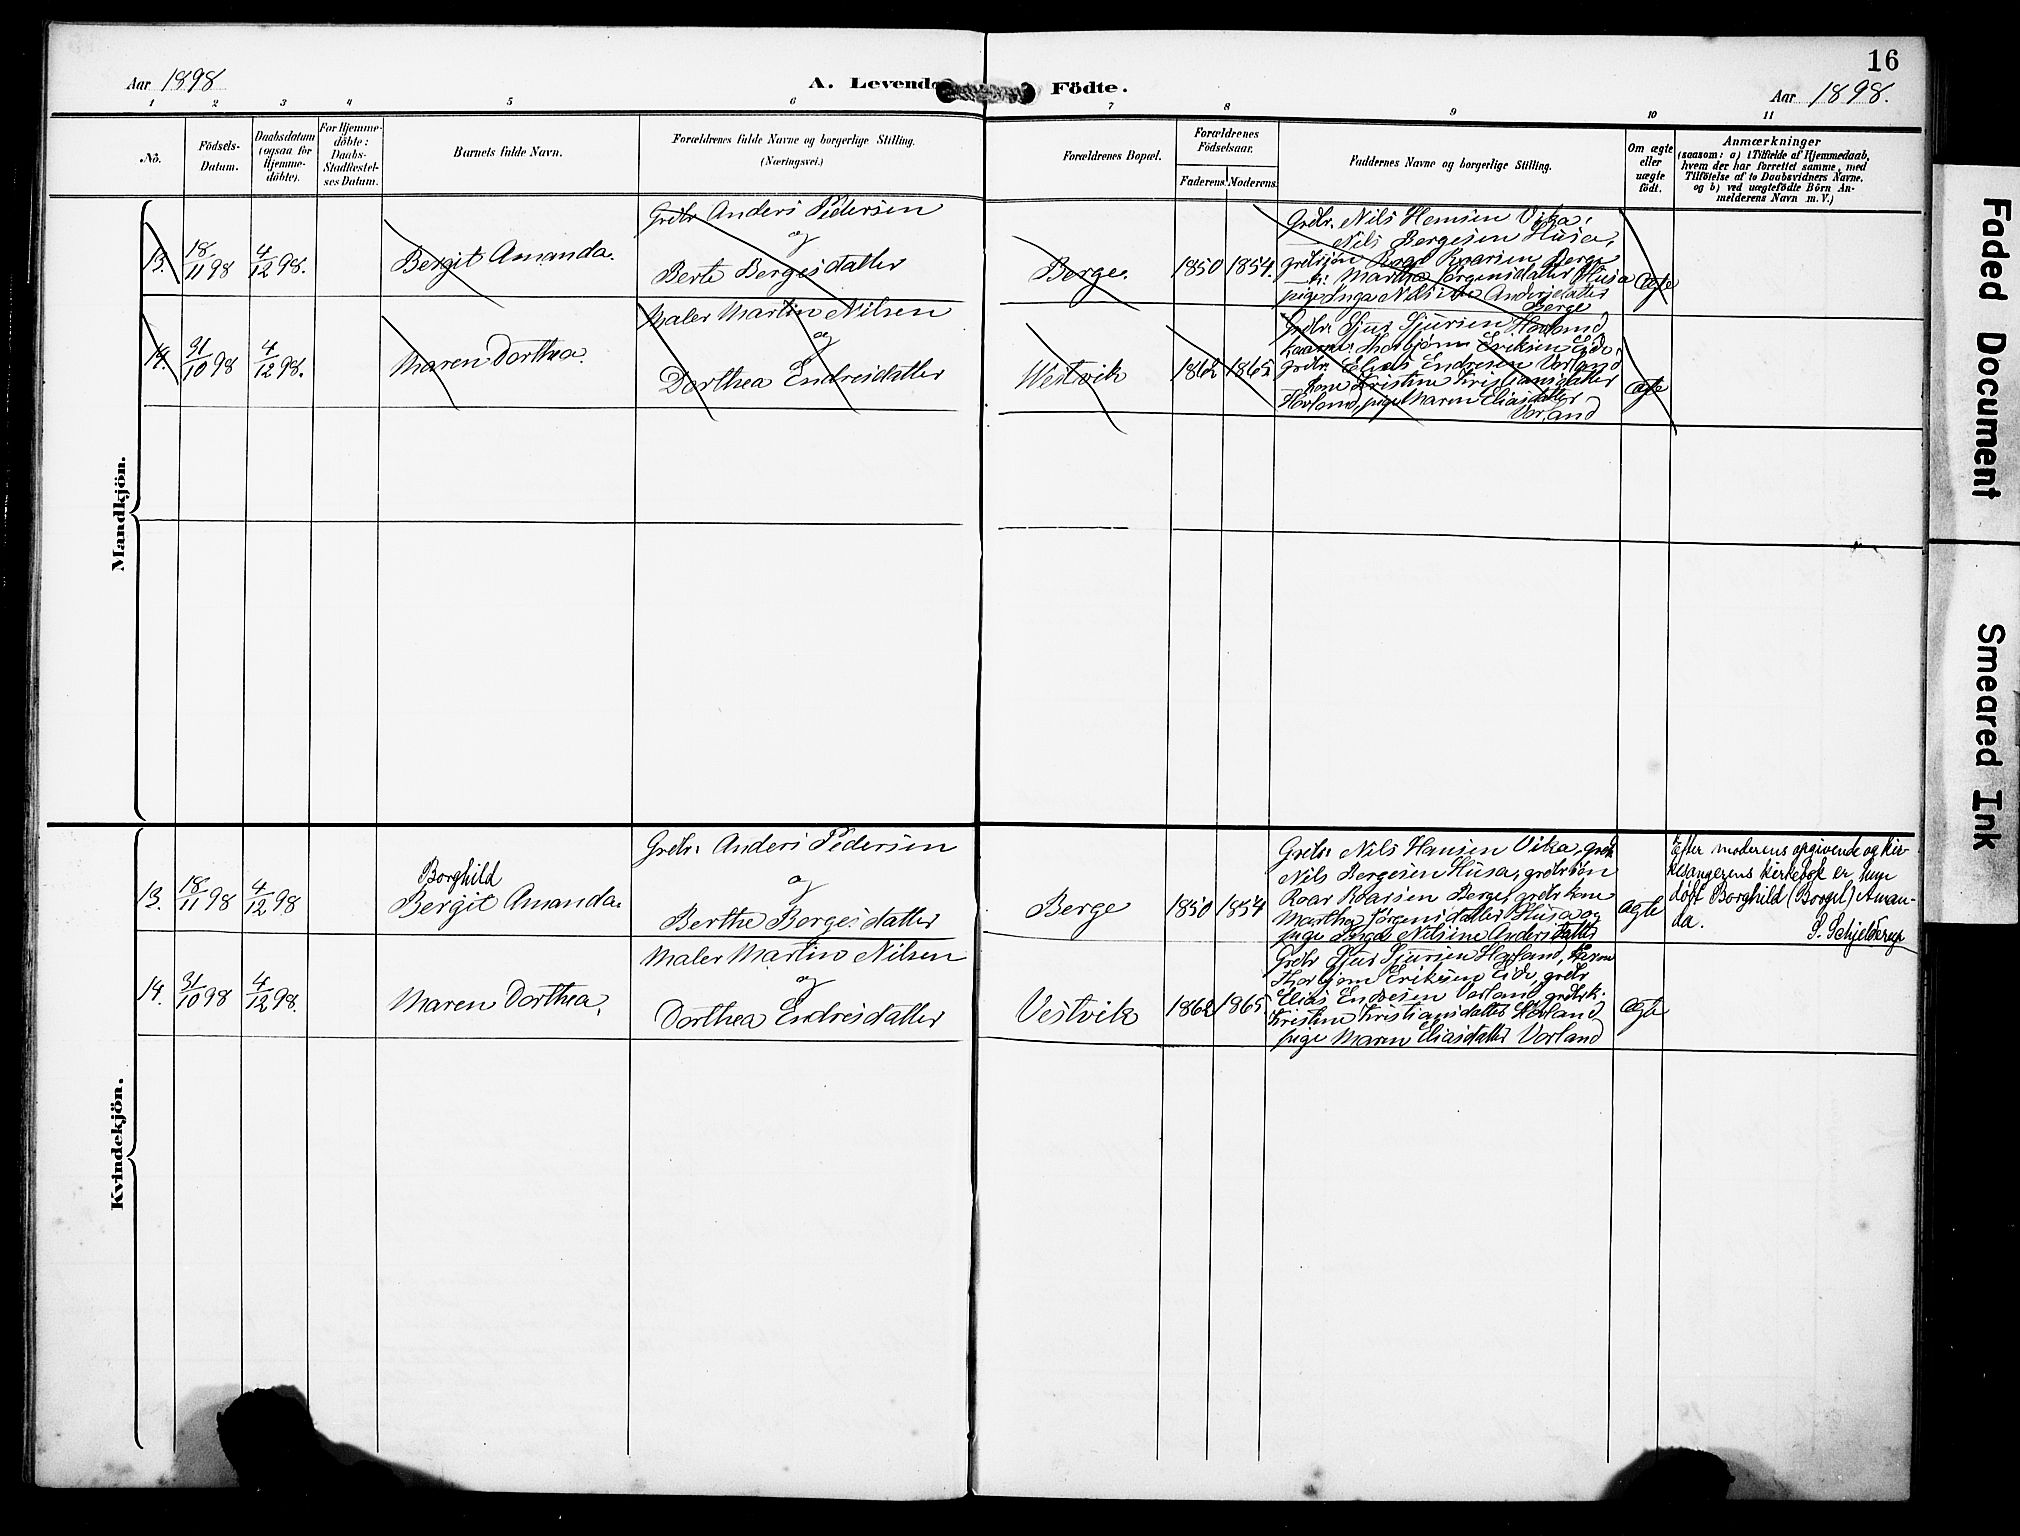 16
Aar 1898
A. Levende
Födte.
Aar 1898.
1 2 3 4 5 6 7 8 9 10 11
No.
Födsels-
Datum.
Daabsdatum
(ogsaa for
Hjemme-
döbte).
For Hjemme-
döbte:
Daabs-
Stadfæstel-
ses Datum.
Barnets fulde Navn.
Forældrenes fulde Navne og borgerlige Stilling.
(Næringsvei.)
Forældrenes Bopæl.
Forældrenes
Födselsaar.
Faderens Moderens.
Faddernes Navne og borgerlige Stilling.
Om ægte
eller
uægte
födt.
Anmærkninger
(saasom: a) i Tilfælde af Hjemmedaab,
hvem der har forrettet samme, med
Tilföielse af to Daabsvidners Navne.
og b) ved uægtefödte Börn An-
melderens Navn m. V.)
Mandkjön.
13.
18/11 98
4/12 98.
Bergit Amanda.
Grdbr. Anders Pedersen
og
Berte Bergesdatter
Berge.
1850 1854.
Grdbr. Nils Hansen Vika,
Nils Bergesen Husa,
grdbrsøn Roar Roarsen Berge
Martha Jørgensdatter Husa
pige Inga Nilsine Andersdatter
Berge
ægte
14.
31/10 98
4/12 98.
Maren Dorthea.
Maler Martin Nilsen
og
Dorthea Endresdatter
Westvik
1862 1865
Grdbr. Sjur Sjursen Hovland
Thorbjørn Eriksen Eide,
grdbr. Elias Endresen Vorland
kone Kristine Kristiansdatter
Hovland, pige Maren Eliasdatter
Vorland
ægte
Kvindekjön.
13.
18/11 98
4/12 98
Borghild
Bergit Amanda.
Grdbr. Anders Pedersen
og
Berthe Borgesdatter
Berge
1850 1854
Grdbr. Nils Hansen Vika, grdb
Nils Bergesen Husa, grdbrsøn
Roar Roarsen Berge, grdbr kone
Martha Jørgensdatter Husa og
pige Inga Nilsine Andersdatter
ægte
Efter moderens opgivende og Kir-
kesangerens kirkebok er hun
døft Borghild (Borgel) Aman-
da. S. Schjelderup
14.
31/10 98
4/12 98.
Maren Dorthea.
Maler Martin Nilsen
og
Dorthea Endresdatter
Vestvik
1862 1865
Grdbr Sjur Sjursen Hovland,
Thorbjørn Eriksen Eide, grdbr
Elias Endresen Vorland, grdbrk.
Kristine Kristiansdatter Hovland
pige Maren Eliasdatter Vorland
ægte
Faded Document
Smeared Ink